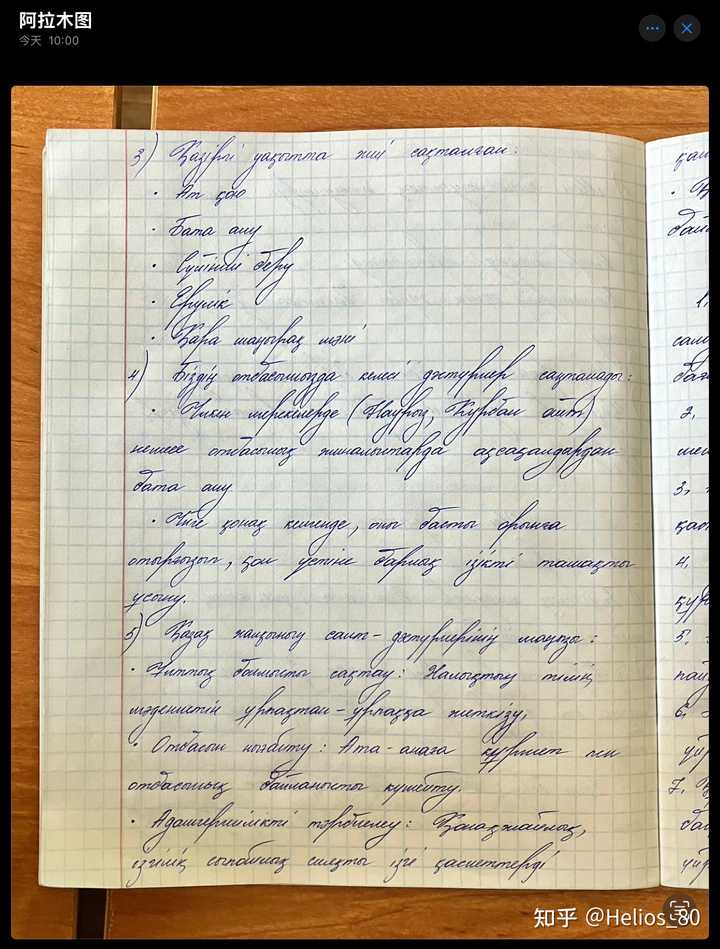 阿拉木图
今天 10:00
3) Қазіргі уақытта жиі сақталған:
• Ат қою
• Бата алу
• Сүйінші беру
• Ерулік
• Қара шаңырақ мәні
4) Біздің отбасымызда келесі дәстүрлер сақталады:
• Үлкен мерекелерде (Наурыз, Құрбан айт)
немесе отбасылық жиналыстарда ақсақалдардан
бата алу
• Үйге қонақ келгенде, оны басты орынға
отырғызып, қол үстіне барлық тамақты
ұсыну.
5) Қазақ халқының салт-дәстүрлерінің маңызы:
• Ұлттық болмысты сақтау: Халықтың тілін,
мәдениетін ұрпақтан-ұрпаққа жеткізу,
• Отбасын нығайту: Ата-анаға құрмет пен
отбасылық байланысты күшейту.
• Адамгершілікті тәрбиелеу: Қонақжайлық,
ізгілік сыпайылық сияқты ізгі қасиеттерді
1.
2.
3.
4.
5.
6.
7.
知乎 @Helios_80